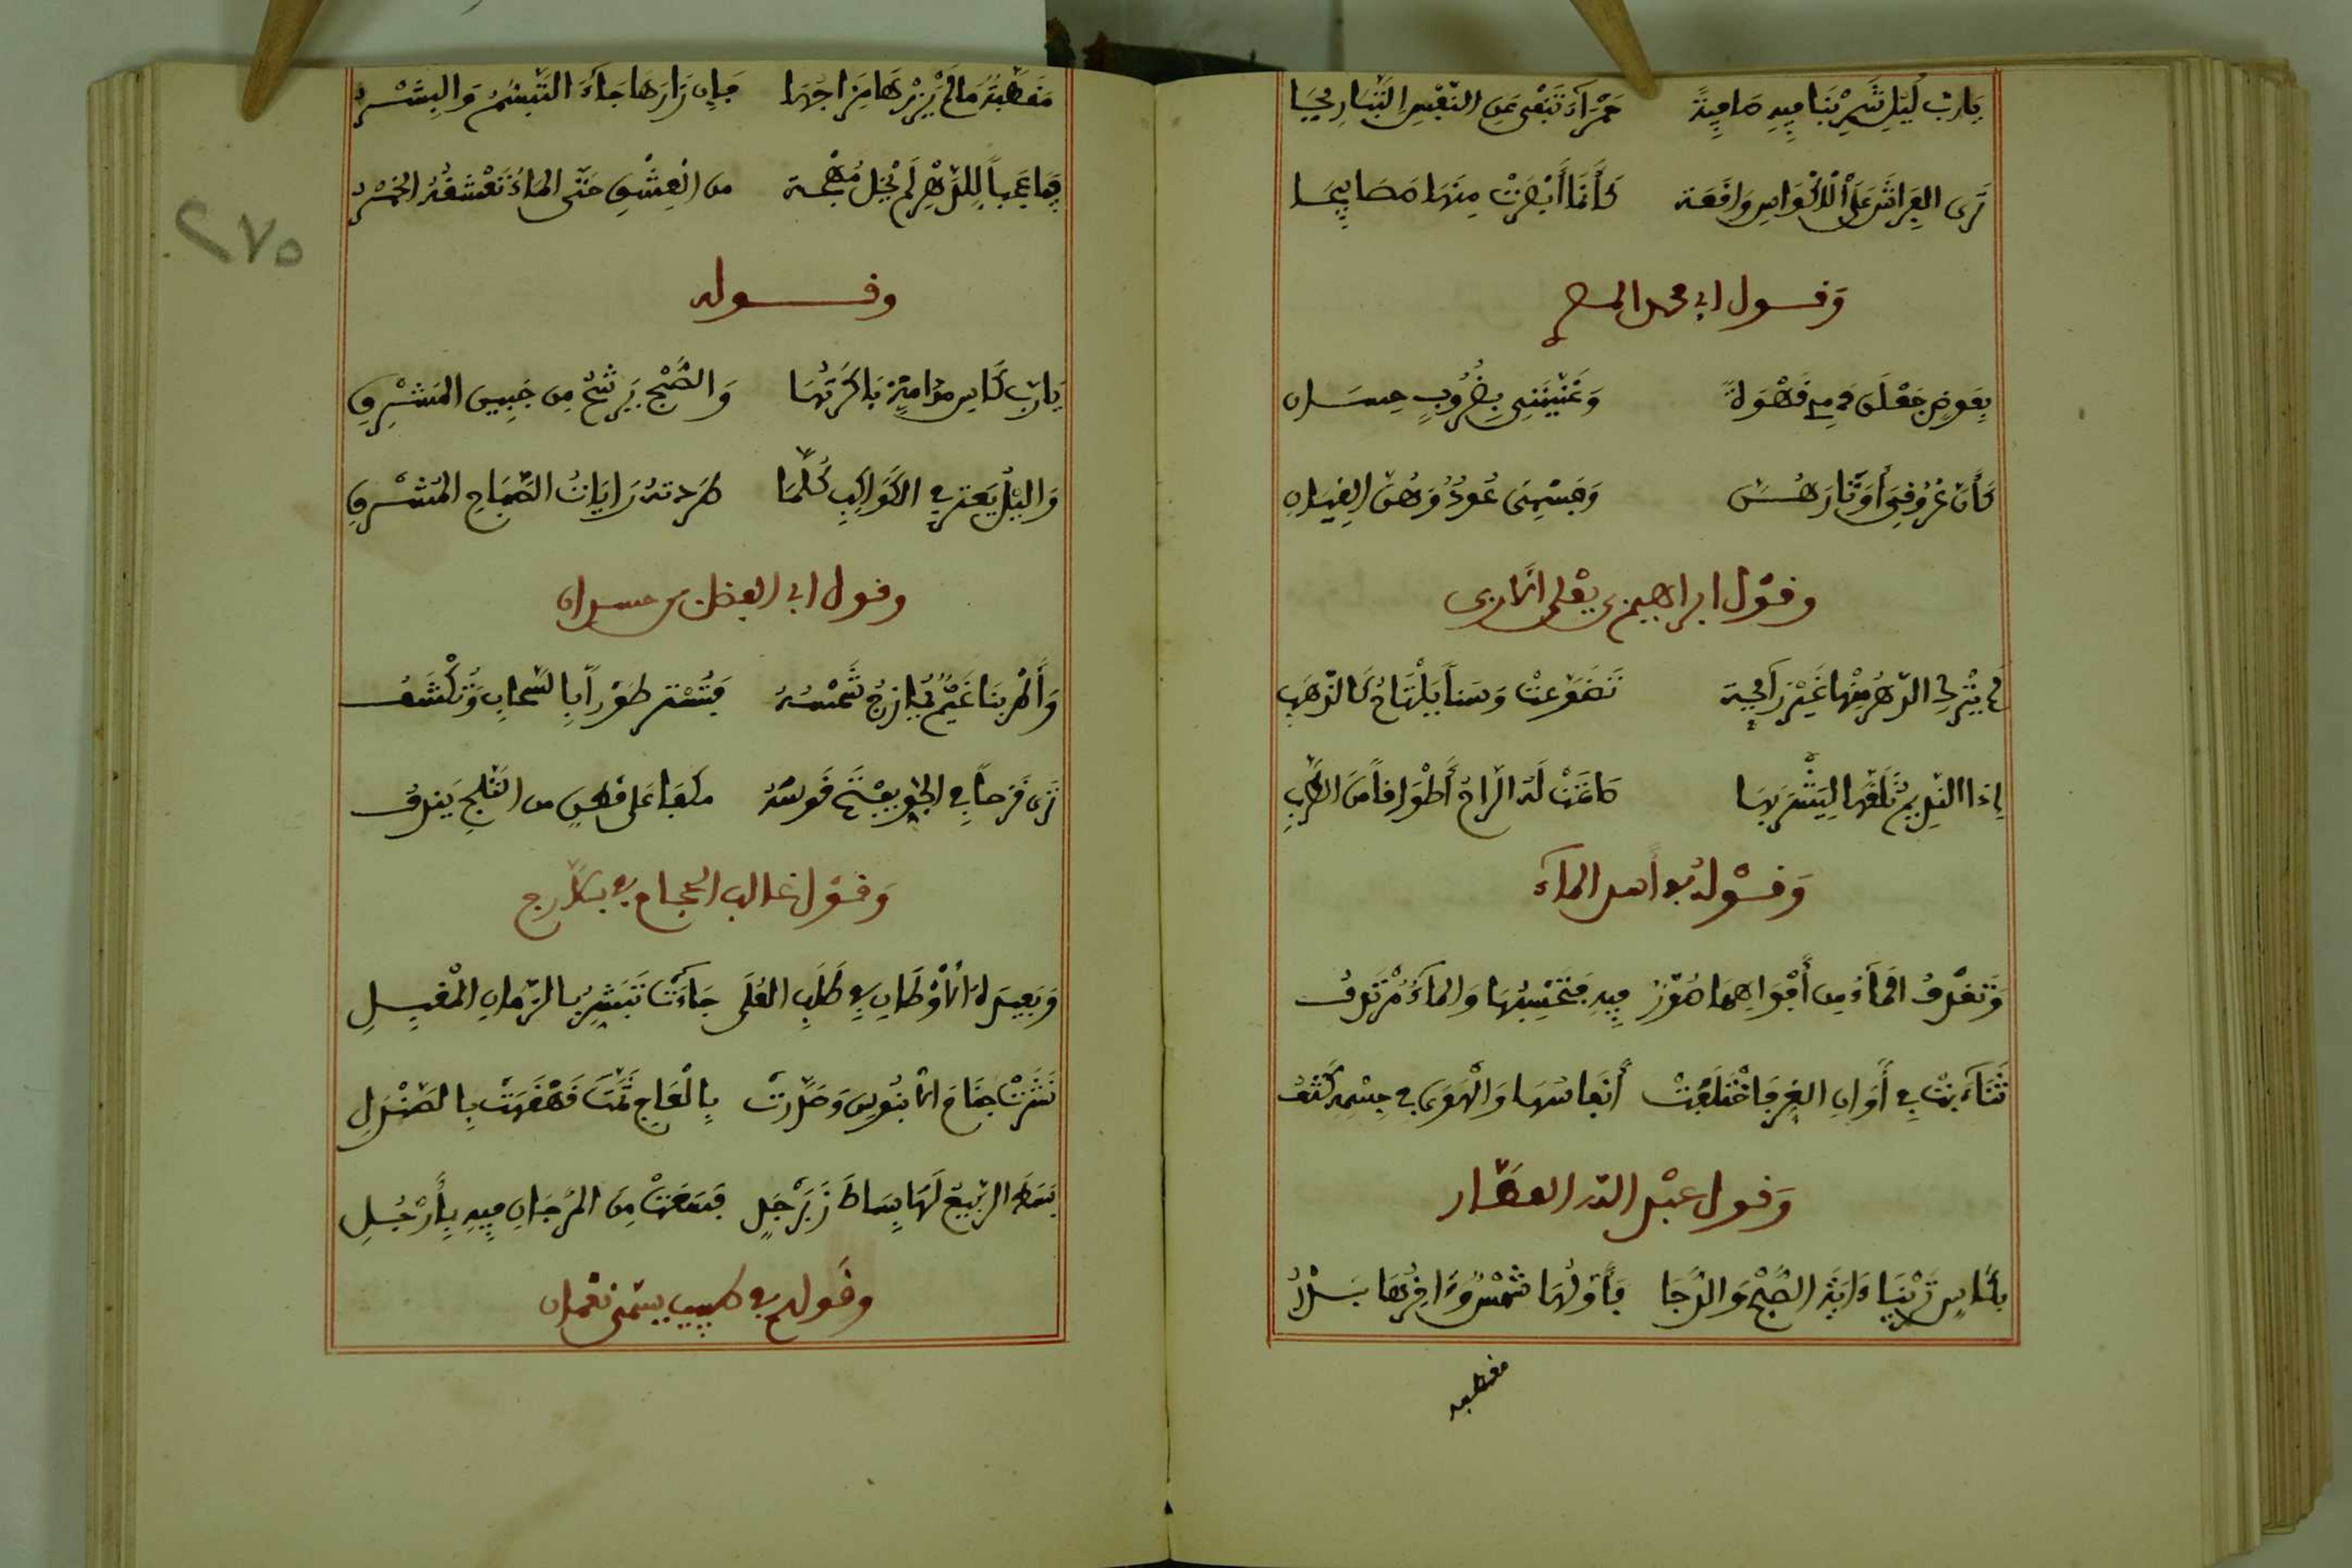 يَارُبَّ لَيْلٍ شَرِبْنَا فِيهِ صَافِيَةً حَمْرَآءَ تَنْفِي عَنِ النَّفْسِ التَّبَارِيحَا
تَرَى الفِرَاشَ عَلَى الاَكْوَاسِ وَاقِعَة كَأَنَّمَا أَبْصَرَتْ مِنْهَا مَصَابِيحَا
وَقول ابي محمد المصري
بِعُوضٍ جَعَلْنَ دَمِي قَهْوَةً وَغَنَّيْنَنِي بِضُرُوبٍ حِسَان
كَأَنَّ عُرُوقِيَ أَوْتَارهُنَّ وَجِسْمِيَ عُودٌ وَهُنَّ القِيَان
وقول ابراهيم بن يعلى
لم يَتْرك الدَّهْرُ مِنْهَا غَيْرَ رَآئِحَة تَضَوَّعتْ وَسَناً يَلْتَاحُ كَالذَّهَبِ
إذا النَّدِيم تَلَقَّاهَا لِيَشْرَبهَا صَاغَتْ لَهُ الرَّاحُ أَطْوَافاً مِنَ الذَّهَبِ
وَقَوْلُهُ في أسد المآء
وَتَقْذِفُ المَآءَ مِن أَفْوَاهِهَا صُوَرٌ فِيهِ فَتَحْسِبُهَا وَالمَآءُ
تَثَآءَبتْ في أَوَانِ القَرِّ فَاخْتَلَفَتْ أَنفَاسُهَا وَالهَوَى في جِسْمِهِ كَثَفُ
وَقول عَبْد الله العطَّار
بكَأْسٍ تَرَيْنَا ءَايَةَ الصُّبْحِ وَالدُّجَا فَأَوَّلُهَا شَمْسٌ وَءَاخِرُهَا بَدْرُ
مقطبه
مُقَطَّبَةٌ مَا لَمْ يَزُرْهَا مِزَاجُهَا فَإِن زَارَهَا جَآءَ التَّبَسُّمُ وَالبِشْرُ
فَيَا عَجَباً لِلدَّهْرِ لَمْ يُخْلِ مُهْجَة مِن العِشْقِ حَتَّى المَاءُ تَعْشَقُهُ الخَمْرُ
وقوله
يَارُبَّ كَأْسِ مُدَامَةٍ بَاكَرْتُهَا وَالصُّبْحُ يَرْشَحُ مِن جَبِينِ المَشْرِقِ
وَالليْلُ يَعثر في الكَوَاكِبِ كُلَّمَا طَرَدتهُ رَايَاتُ الصَّبَاحِ المُشْرِقِ
وقول ابي الفضل بن حسداي
وَأَطْرَبنَا غَيْمٌ يُمَازِجُ شَمْسَهُ فَتُسْتر طَوْراً بِالسَّحَابِ وَتُكْشَفُ
تَرَى قُزَحاً في الجَوِّ يَفْتَحُ قَوْسَهُ مكبا عَلَى قُطْنٍ من الثَّلْجِ يَنْدِفُ
وَقَوْل غالب الحجام في بلارج
وَبَعِيدَةِ الاَوْطَانِ في طَلَبِ العُلَى جَاءَتْ تُبَشِّرُ بالزَّمَانِ المُقْبِلِ
نَشَرَتْ جَنَاحَ الاَبَنُوسِ وَصَدَّرَتْ بِالْعَاجِ ثُمَّتَ قَهْقَهَتْ بِالصَّنْدَلِ
بَسَطَ الرَّبِيعُ لَهَا بِسَاطَ زَبَرْجَدٍ فَسَعَتْ مِنَ المُرْجَانِ فِيهِ بِأَرْجُلِ
وقولهم في طبيب يسَمَّى نعمان
٢٧٥